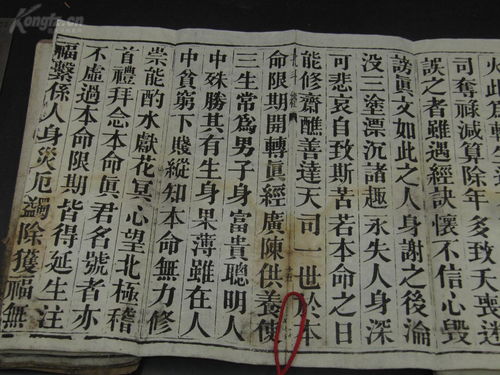 司奪祿減算除年多致夭喪迷
誤之者雖遇經訣懷不信心毀
謗眞文如此之人身謝之後淪
沒三塗漂沉諸趣永失人身深
可悲哀自致斯苦若本命之日
能修齋醮善達天司一世於本
命限期開轉眞經廣陳供養使
三生常爲男子身富貴聰明人
中殊勝其有生身果薄雖在人
中貧窮下賤縱知本命無力修
崇能酌水獻花冥心望北極稽
首禮拜念本命眞君名號者亦
不虛過本命限期皆得延生注
福繫係人身災厄蠲除獲福無